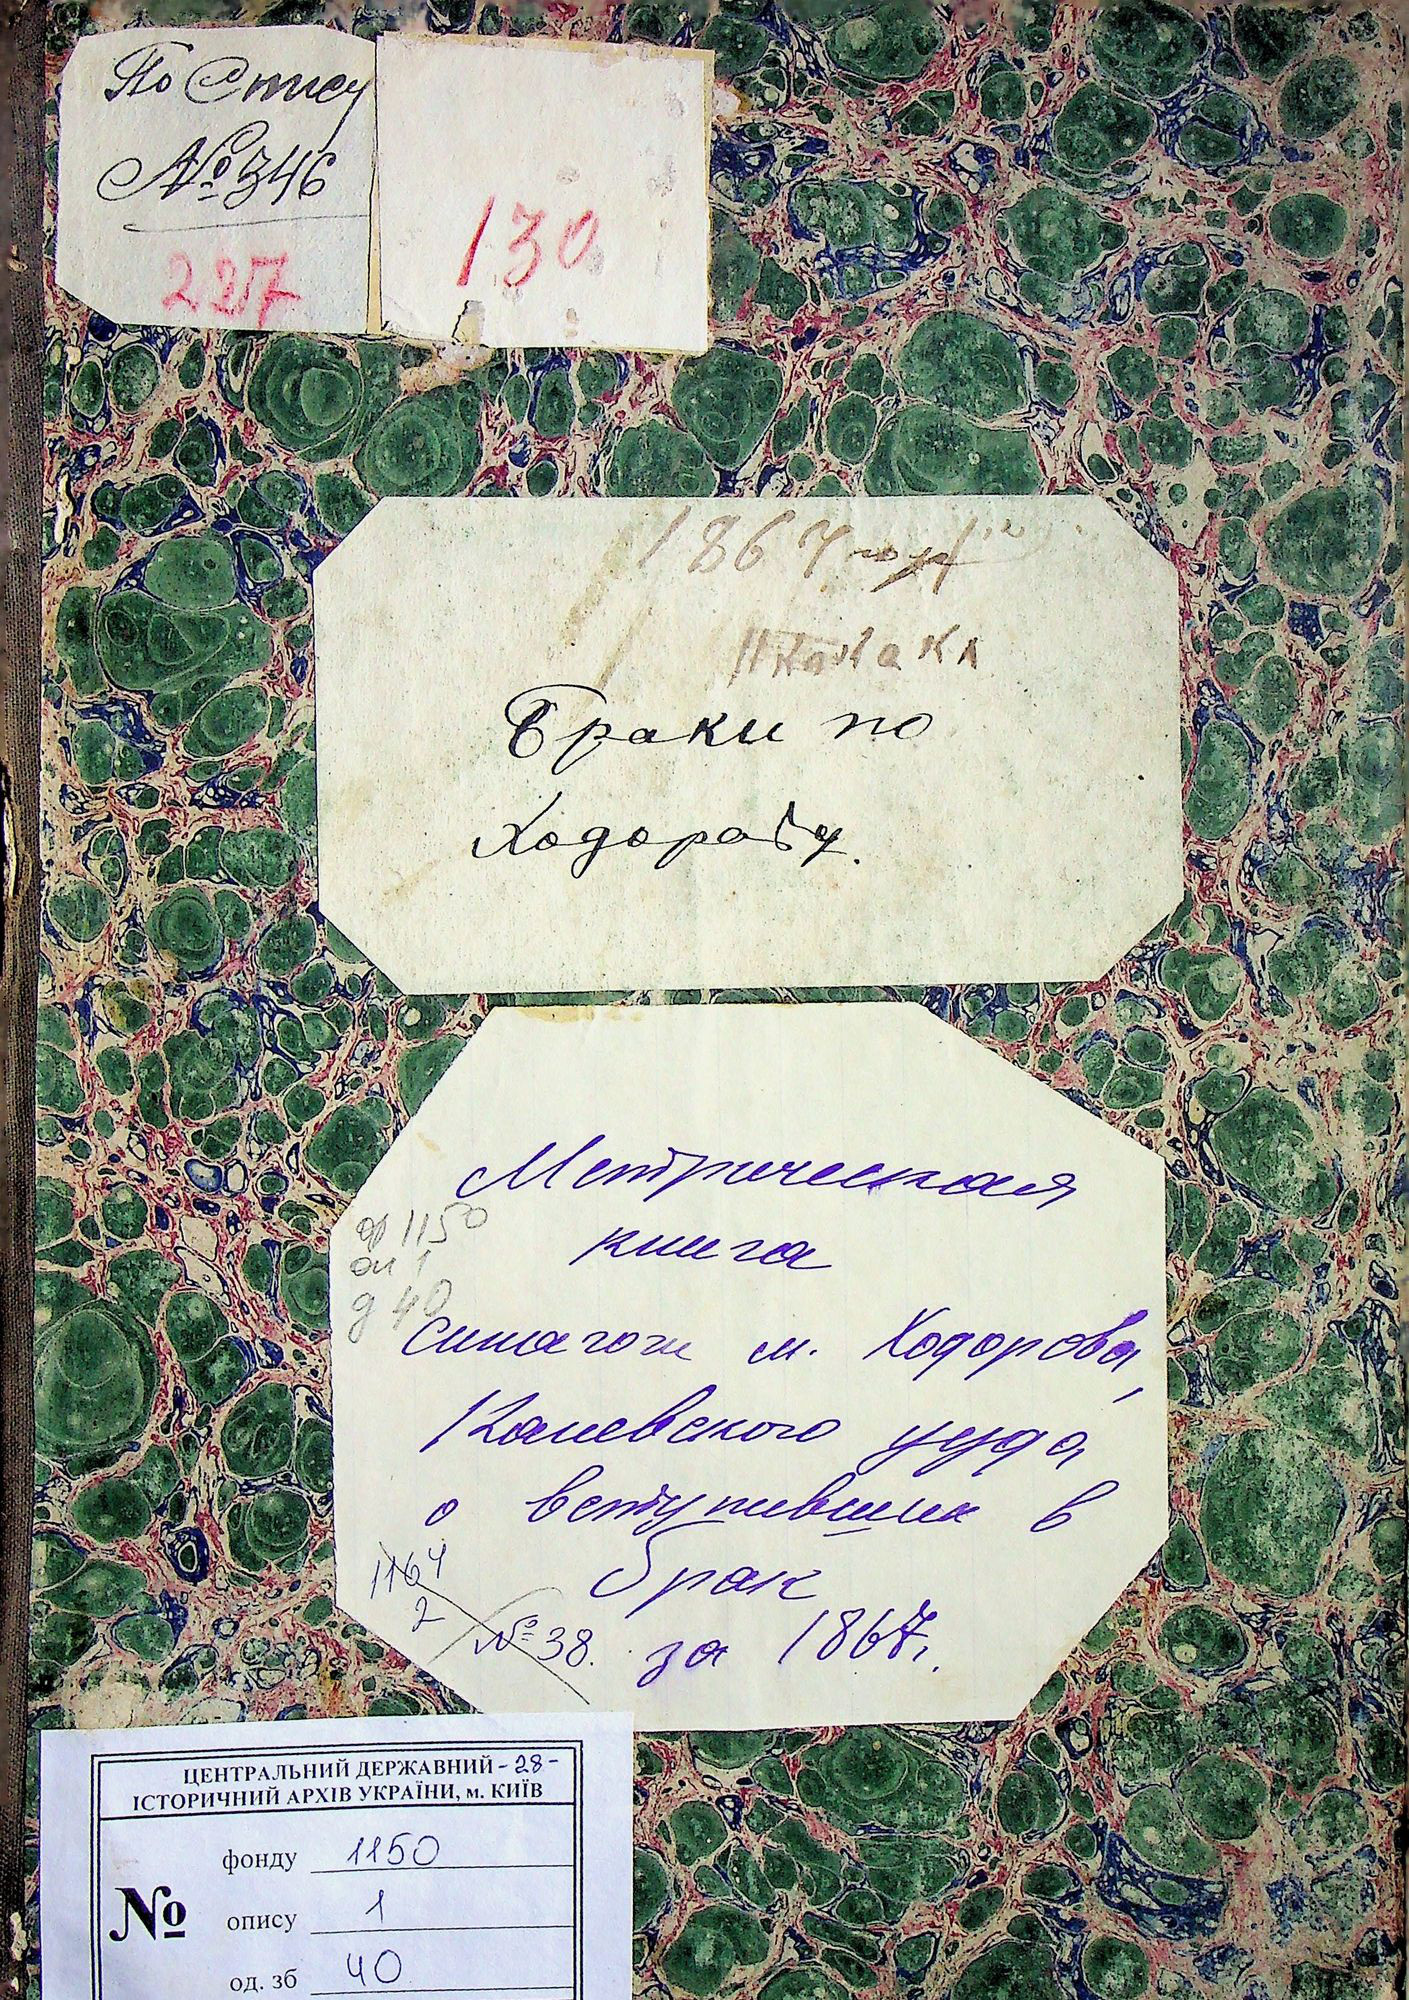 По Спису
№ 346
227
130
1867 года
Браки по
Ходорову.
Метрическая
книга
ф 1150
оп 1
д 40
синагоги м. Ходорова,
Каневского уезда
о вступивших в
брак
1164
2
№ 38.
за 1867г.
ЦЕНТРАЛЬНИЙ ДЕРЖАВНИЙ -28-
ІСТОРИЧНИЙ АРХІВ УКРАЇНИ, м. КИЇВ
фонду 1150
№ опису 1
од. зб 40